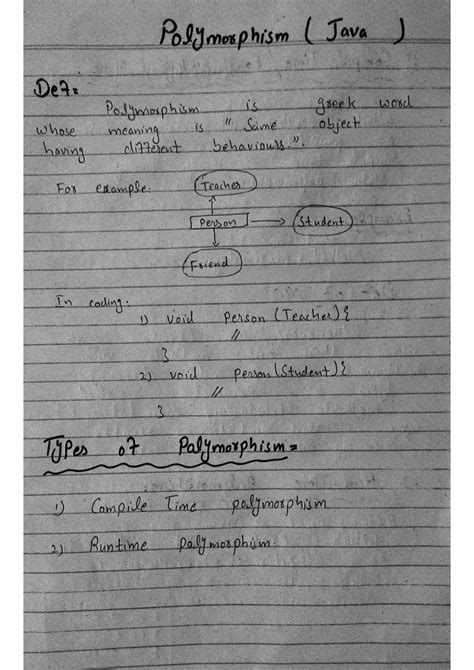 Polymorphism ( Java )
Def=
Polymorphism is greek word
whose meaning is " Same object
having different behaviours.".
For example.
Teacher
Person
Student
Friend
In coding:
1) void person (Teacher){
//
}
2) void person(Student){
//
}
Types of Polymorphism=
1) Compile Time polymorphism
2) Runtime polymorphism.